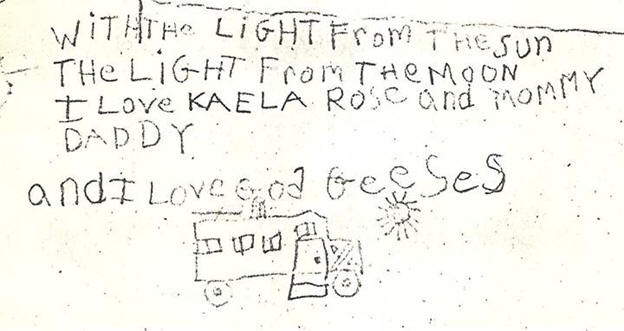 WITH THe LIGHT From THe Sun
THe LiGHT From THe MOON
I Love KAELA Rose and MOMMY
DADDY
and I Love God GeeSeS